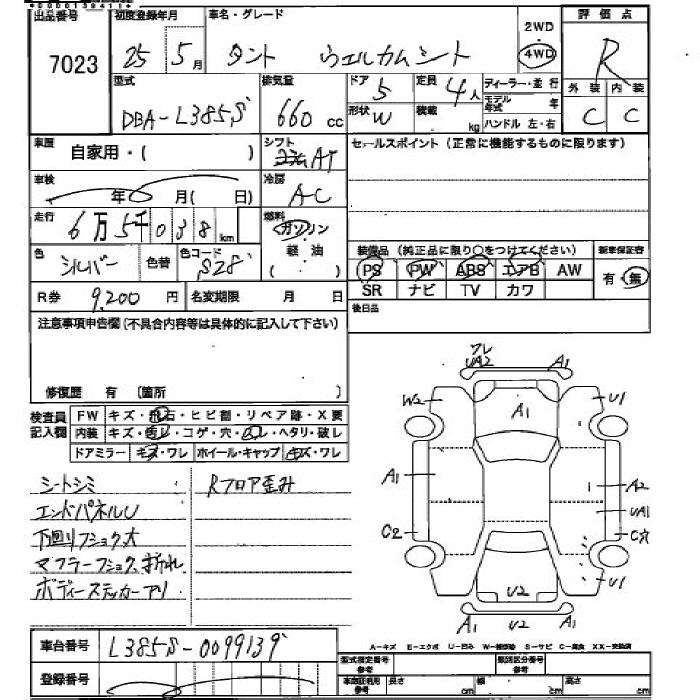 出品番号 初度登録年月 車名・グレード 2WD 評価点
7023 25 5月 タント ウェルカムシート 4WD R
型式 排気量 ドア 定員 ディーラー・並行 外装 内装
DBA-L385S 660 cc 5 4人 モデル年式 年 C C
形状 W 積載 kg ハンドル 左・右
車歴 自家用・( ) シフト AT セールスポイント (正常に機能するものに限ります)
車検 年 月(日) 冷房 AC
走行 6万5千038km 燃料 ガソリン 軽油 ( )
色 シルバー 色替 色コード S28 装備品 (純正品に限り○をつけてください) 新車保証書
PS PW ABS エアB AW 有・無
R券 9,200円 名変期限 月 日 SR ナビ TV カワ
後日品
注意事項申告欄 (不具合内容等は具体的に記入して下さい)
修復歴 有 (箇所 )
検査員記入欄 FW キズ・飛石・ヒビ割・リペア跡・X要
内装 キズ・汚レ・コゲ・穴・ ・ヘタリ・破レ
ドアミラー キズ・ワレ ホイール・キャップ キズ・ワレ
シートシミ Rフロア歪み
エンドパネルU
下回りフショク大
マフラーフショク、折れ
ボディーステッカーアリ
ワレ
UA2 A1
W2 A1 U1
A1 A2
UA1
C2 C穴
U2 U1
A1 U2 A1
車台番号 L385S-0099139
登録番号
A-キズ E-エクボ U-凹み W-補修跡 S-サビ C-腐食 XX-交換済
型式指定番号 類別区分番号
参考 参考
車庫証明用参考 長さ cm 幅 cm 高さ cm